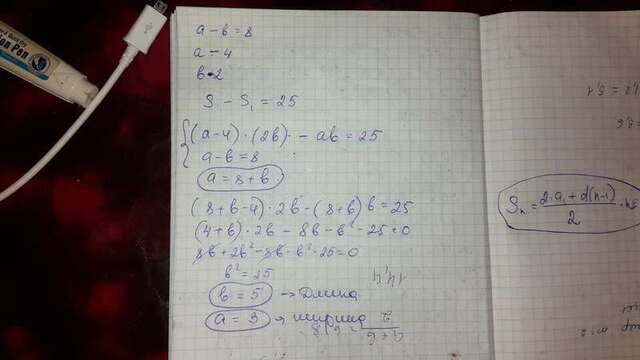 a - b = 8
a - 4
b · 2
S - S₁ = 25
{ (a-4)·(2b) - ab = 25
a - b = 8
a = 8 + b
(8+b-4)·2b - (8+b)b = 25
(4+b)·2b - 8b - b² - 25 = 0
8b + 2b² - 8b - b² - 25 = 0
b² = 25
b = 5 → Длина
a = 3 → ширина
14,4
Sₙ = (2·a₁ + d(n-1))/2 · n